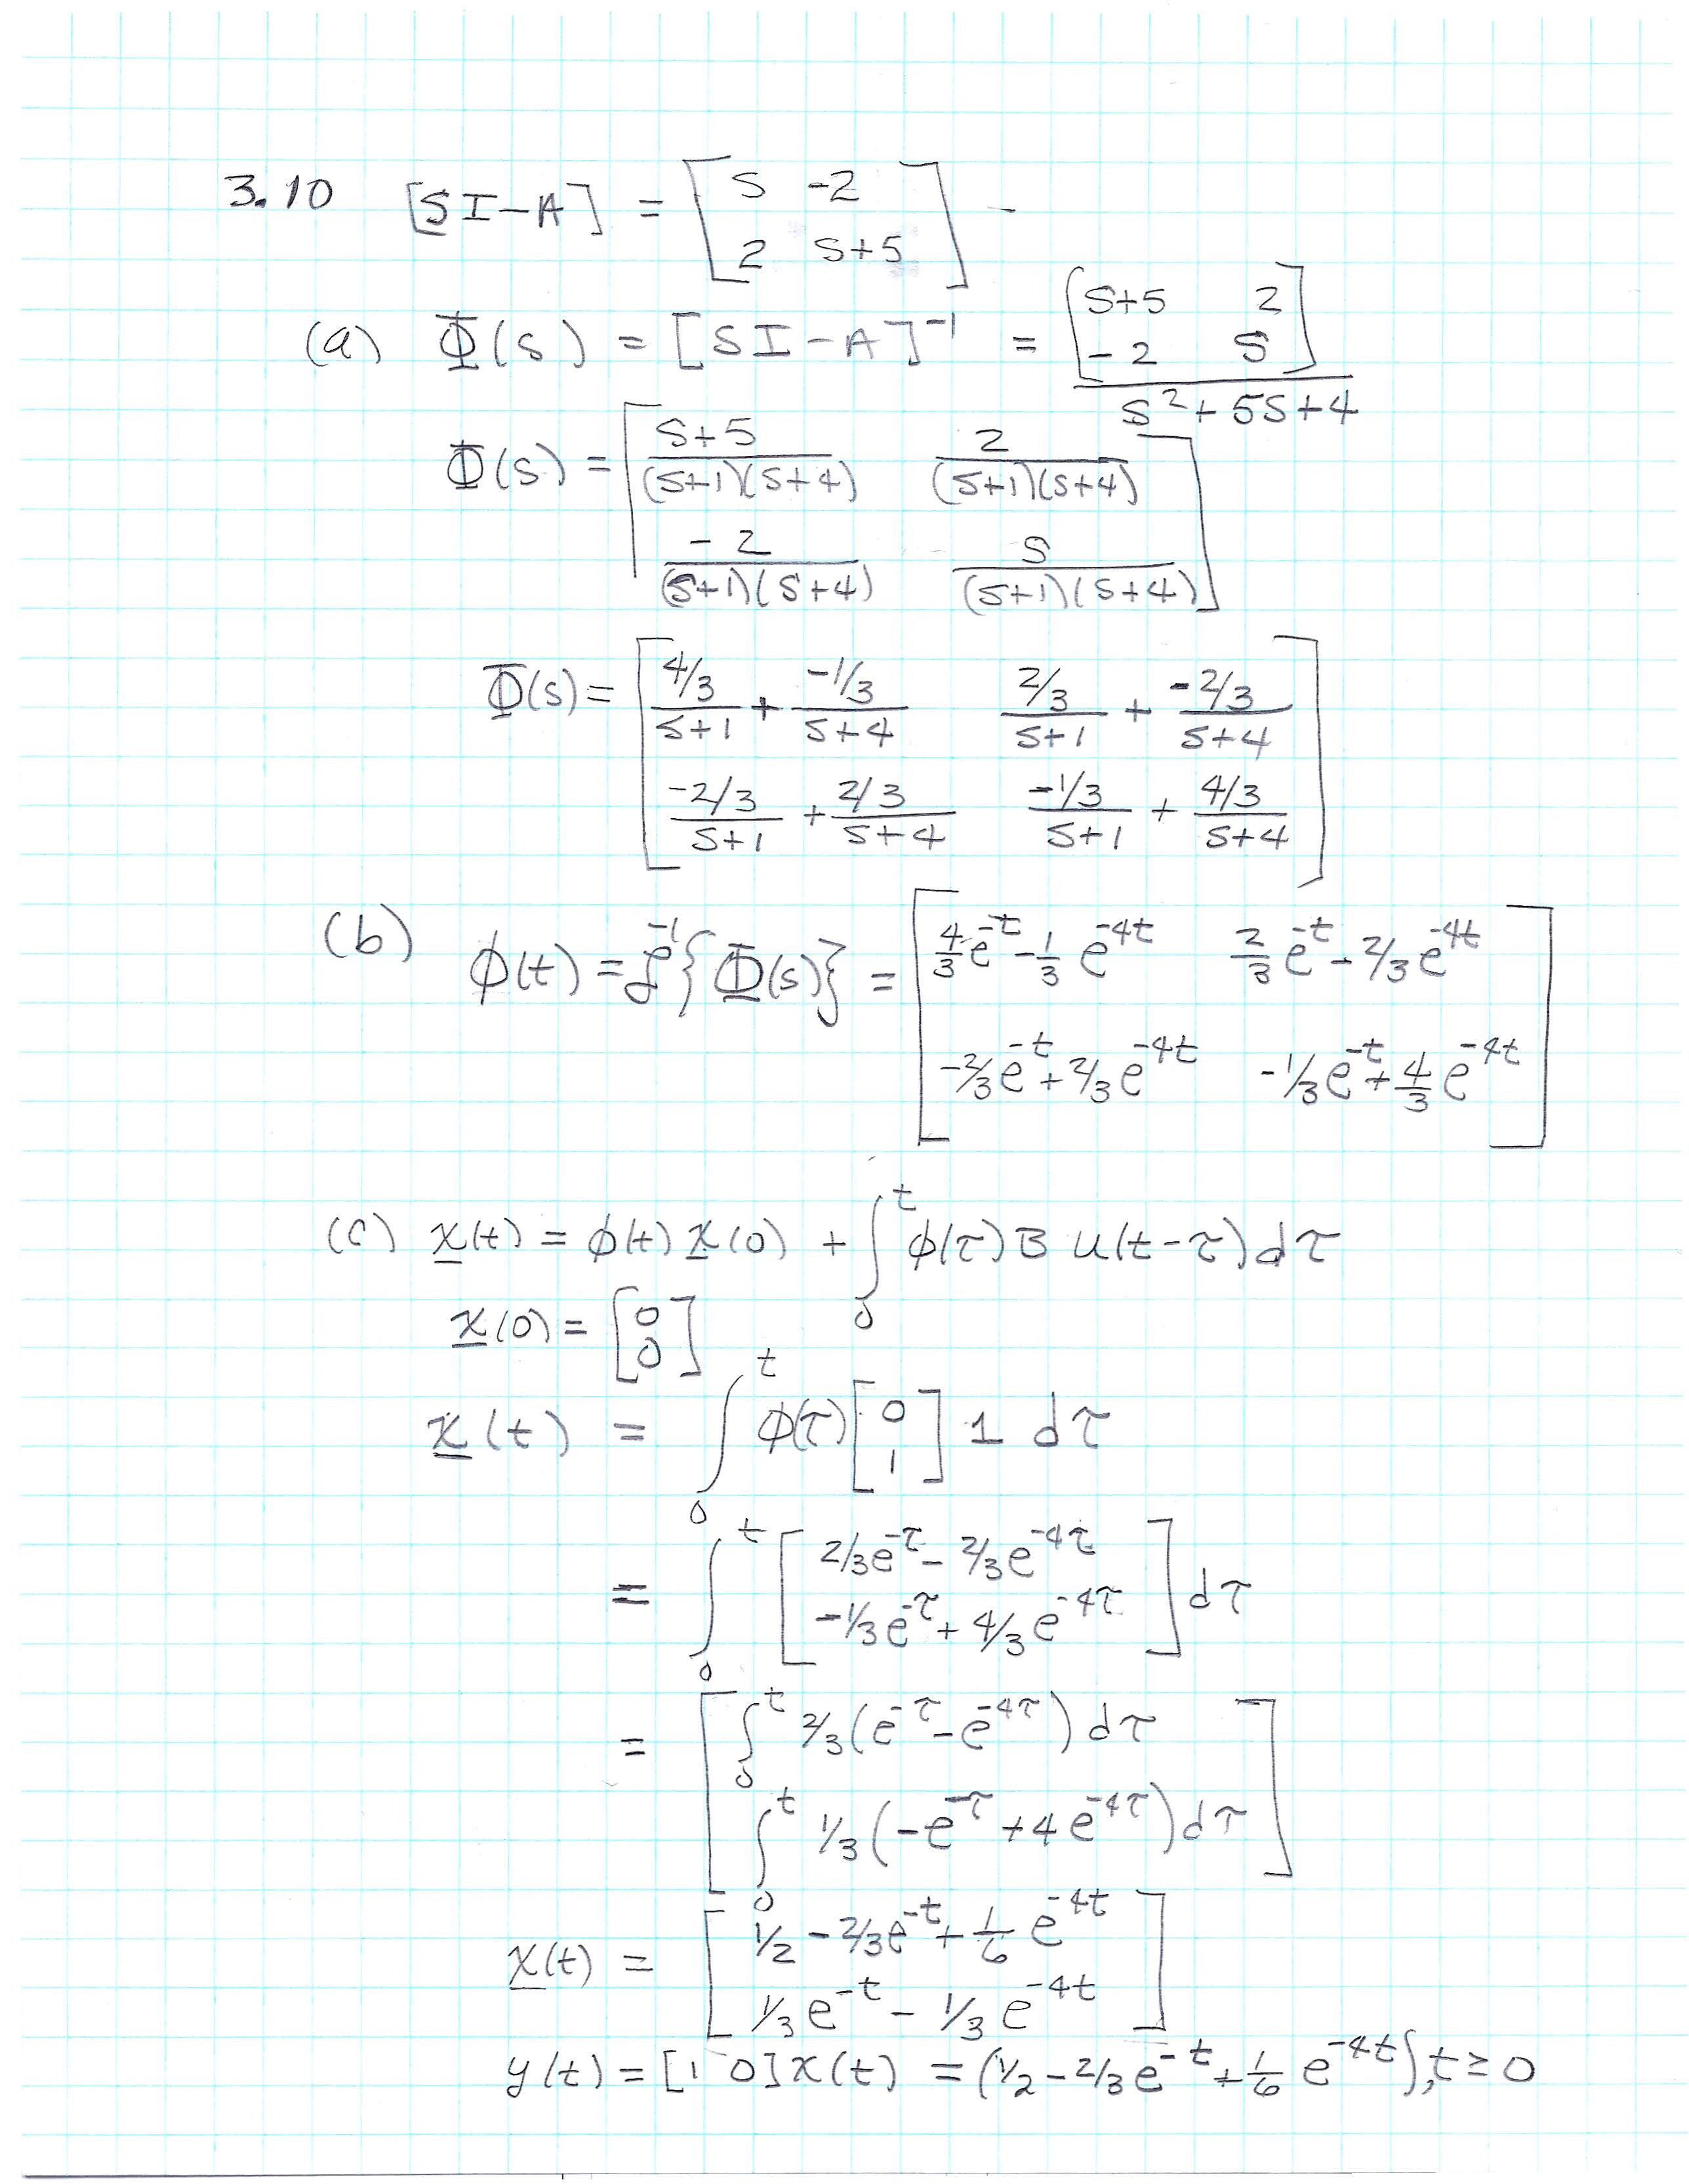 3.10 [SI-A] = [S -2; 2 S+5]
(a) Φ(s) = [SI-A]⁻¹ = [S+5 2; -2 S] / S²+5S+4
Φ(s) = [S+5/(S+1)(S+4) 2/(S+1)(S+4); -2/(S+1)(S+4) S/(S+1)(S+4)]
Φ(s) = [4/3/S+1 + -1/3/S+4 2/3/S+1 + -2/3/S+4; -2/3/S+1 + 2/3/S+4 -1/3/S+1 + 4/3/S+4]
(b) φ(t) = ℒ⁻¹{Φ(s)} = [4/3 e^-t - 1/3 e^-4t 2/3 e^-t - 2/3 e^-4t; -2/3 e^-t + 2/3 e^-4t -1/3 e^-t + 4/3 e^-4t]
(c) x(t) = φ(t) x(0) + ∫₀ᵗ φ(τ) B u(t-τ) dτ
x(0) = [0; 0]
x(t) = ∫₀ᵗ φ(τ) [0; 1] 1 dτ
= ∫₀ᵗ [2/3 e^-τ - 2/3 e^-4τ; -1/3 e^-τ + 4/3 e^-4τ] dτ
= [∫₀ᵗ 2/3 (e^-τ - e^-4τ) dτ; ∫₀ᵗ 1/3 (-e^-τ + 4 e^-4τ) dτ]
x(t) = [1/2 - 2/3 e^-t + 1/6 e^-4t; 1/3 e^-t - 1/3 e^-4t]
y(t) = [1 0] x(t) = (1/2 - 2/3 e^-t + 1/6 e^-4t), t ≥ 0